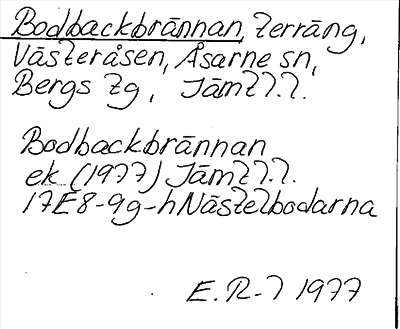 Bodbackbrännan, Terräng,
Västeråsen, Åsarne sn,
Bergs tg, Jämtl.l.
Bodbackbrännan
ek (1977) Jämtl.l.
17E8-9g-h Nästelbodarna
E.R-l 1977